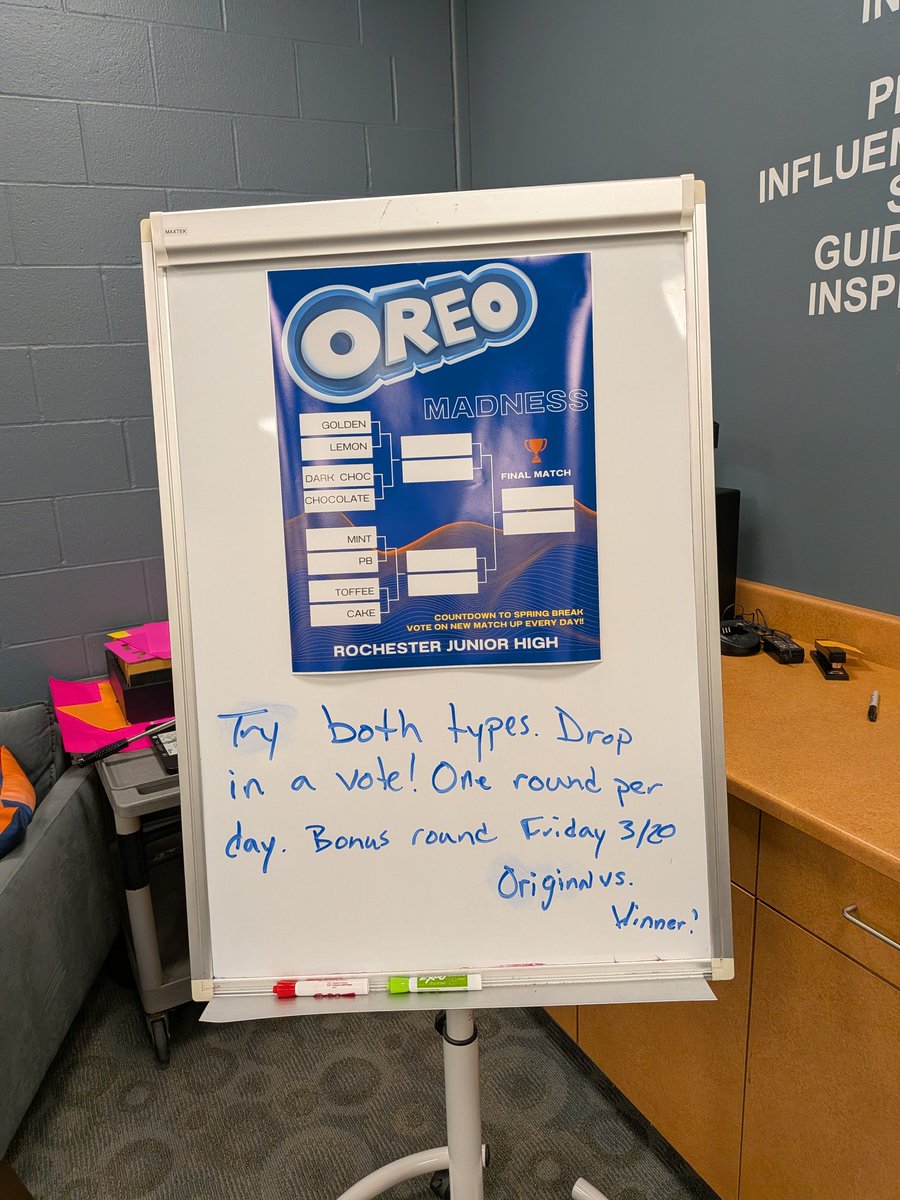 MAXTEK
OREO
MADNESS
GOLDEN
LEMON
DARK CHOC
CHOCOLATE
MINT
PB
TOFFEE
CAKE
FINAL MATCH
COUNTDOWN TO SPRING BREAK
VOTE ON NEW MATCH UP EVERY DAY!!
ROCHESTER JUNIOR HIGH
Try both types. Drop
in a vote! One round per
day. Bonus round Friday 3/20
Original vs.
Winner!
EXPO
IN
INFLUEN
GUID
INSPI